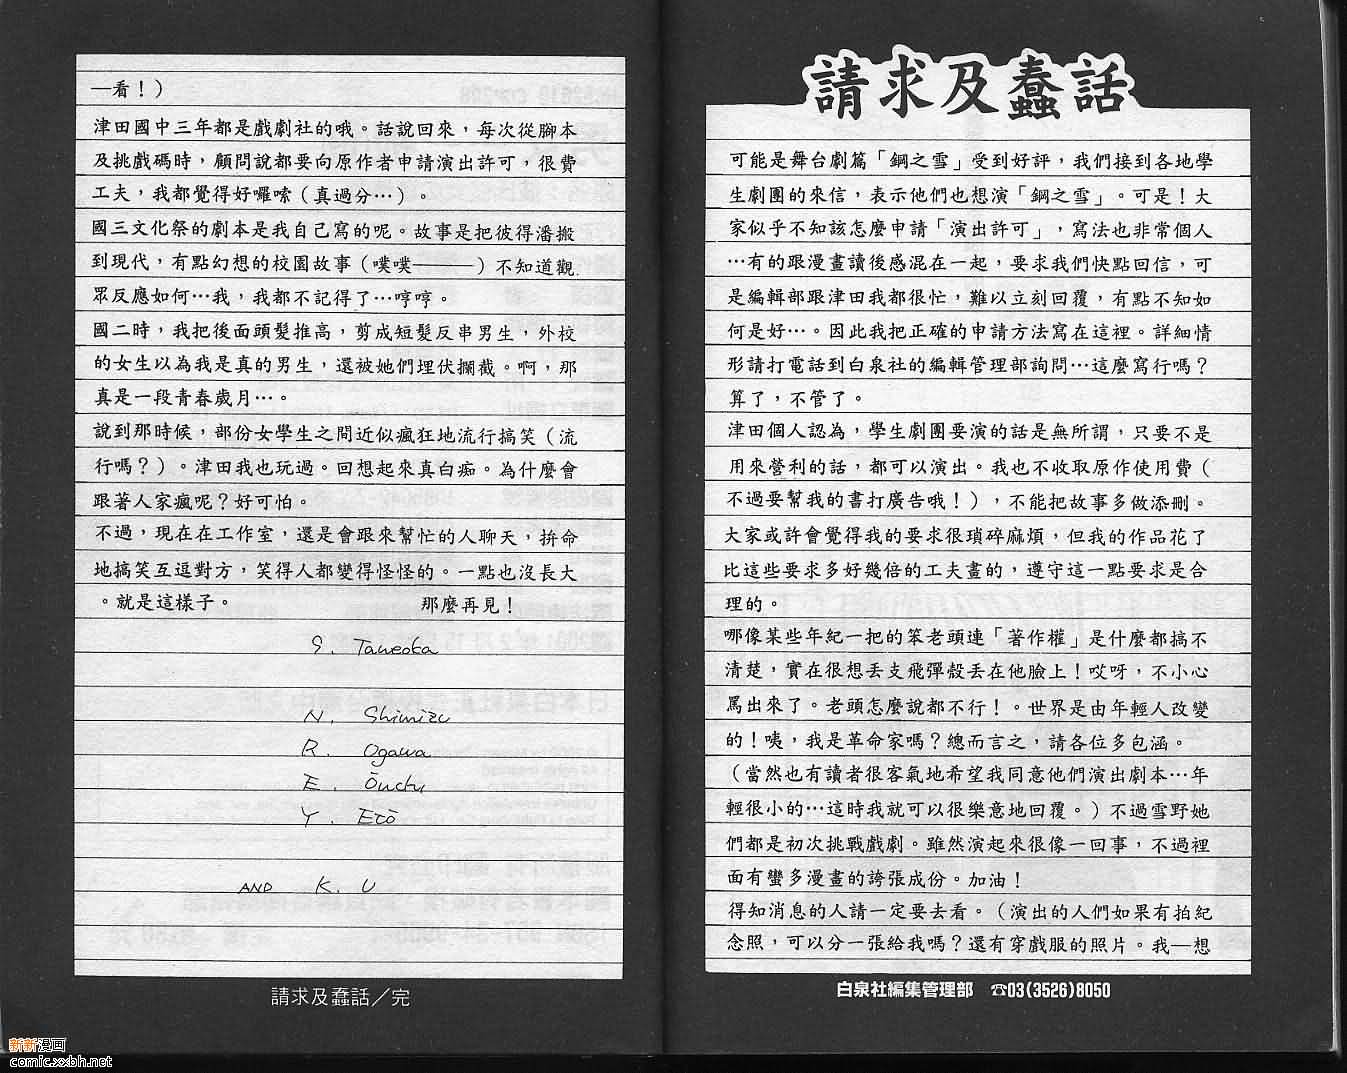 請求及蠢話
可能是舞台劇篇「鋼之雪」受到好評，我們接到各地學
生劇團的來信，表示他們也想演「鋼之雪」。可是！大
家似乎不知該怎麼申請「演出許可」，寫法也非常個人
…有的跟漫畫讀後感混在一起，要求我們快點回信，可
是編輯部跟津田我都很忙，難以立刻回覆，有點不知如
何是好…。因此我把正確的申請方法寫在這裡。詳細情
形請打電話到白泉社的編輯管理部詢問…這麼寫行嗎？
算了，不管了。
津田個人認為，學生劇團要演的話是無所謂，只要不是
用來營利的話，都可以演出。我也不收取原作使用費（
不過要幫我的書打廣告哦！），不能把故事多做添刪。
大家或許會覺得我的要求很瑣碎麻煩，但我的作品花了
比這些要求多好幾倍的工夫畫的，遵守這一點要求是合
理的。
哪像某些年紀一把的笨老頭連「著作權」是什麼都搞不
清楚，實在很想丟支飛彈殼丟在他臉上！哎呀，不小心
罵出來了。老頭怎麼說都不行！。世界是由年輕人改變
的！咦，我是革命家嗎？總而言之，請各位多包涵。
（當然也有讀者很客氣地希望我同意他們演出劇本…年
輕很小的…這時我就可以很樂意地回覆。）不過雪野她
們都是初次挑戰戲劇。雖然演起來很像一回事，不過裡
面有蠻多漫畫的誇張成份。加油！
得知消息的人請一定要去看。（演出的人們如果有拍紀
念照，可以分一張給我嗎？還有穿戲服的照片。我一想
白泉社編集管理部　☎03(3526)8050
一看！）
津田國中三年都是戲劇社的哦。話說回來，每次從腳本
及挑戲碼時，顧問說都要向原作者申請演出許可，很費
工夫，我都覺得好囉嗦（真過分…）。
國三文化祭的劇本是我自己寫的呢。故事是把彼得潘搬
到現代，有點幻想的校園故事（噗噗———）不知道觀
眾反應如何…我，我都不記得了…哼哼。
國二時，我把後面頭髮推高，剪成短髮反串男生，外校
的女生以為我是真的男生，還被她們埋伏攔截。啊，那
真是一段青春歲月…。
說到那時候，部份女學生之間近似瘋狂地流行搞笑（流
行嗎？）。津田我也玩過。回想起來真白痴。為什麼會
跟著人家瘋呢？好可怕。
不過，現在在工作室，還是會跟來幫忙的人聊天，拚命
地搞笑互逗對方，笑得人都變得怪怪的。一點也沒長大
。就是這樣子。　　　　　　　　那麼再見！
S. Taneoka
N. Shimizu
R. Ogawa
E. Ōuchi
Y. Etō
AND K. U
請求及蠢話／完
新新漫画
comic.xxbh.net